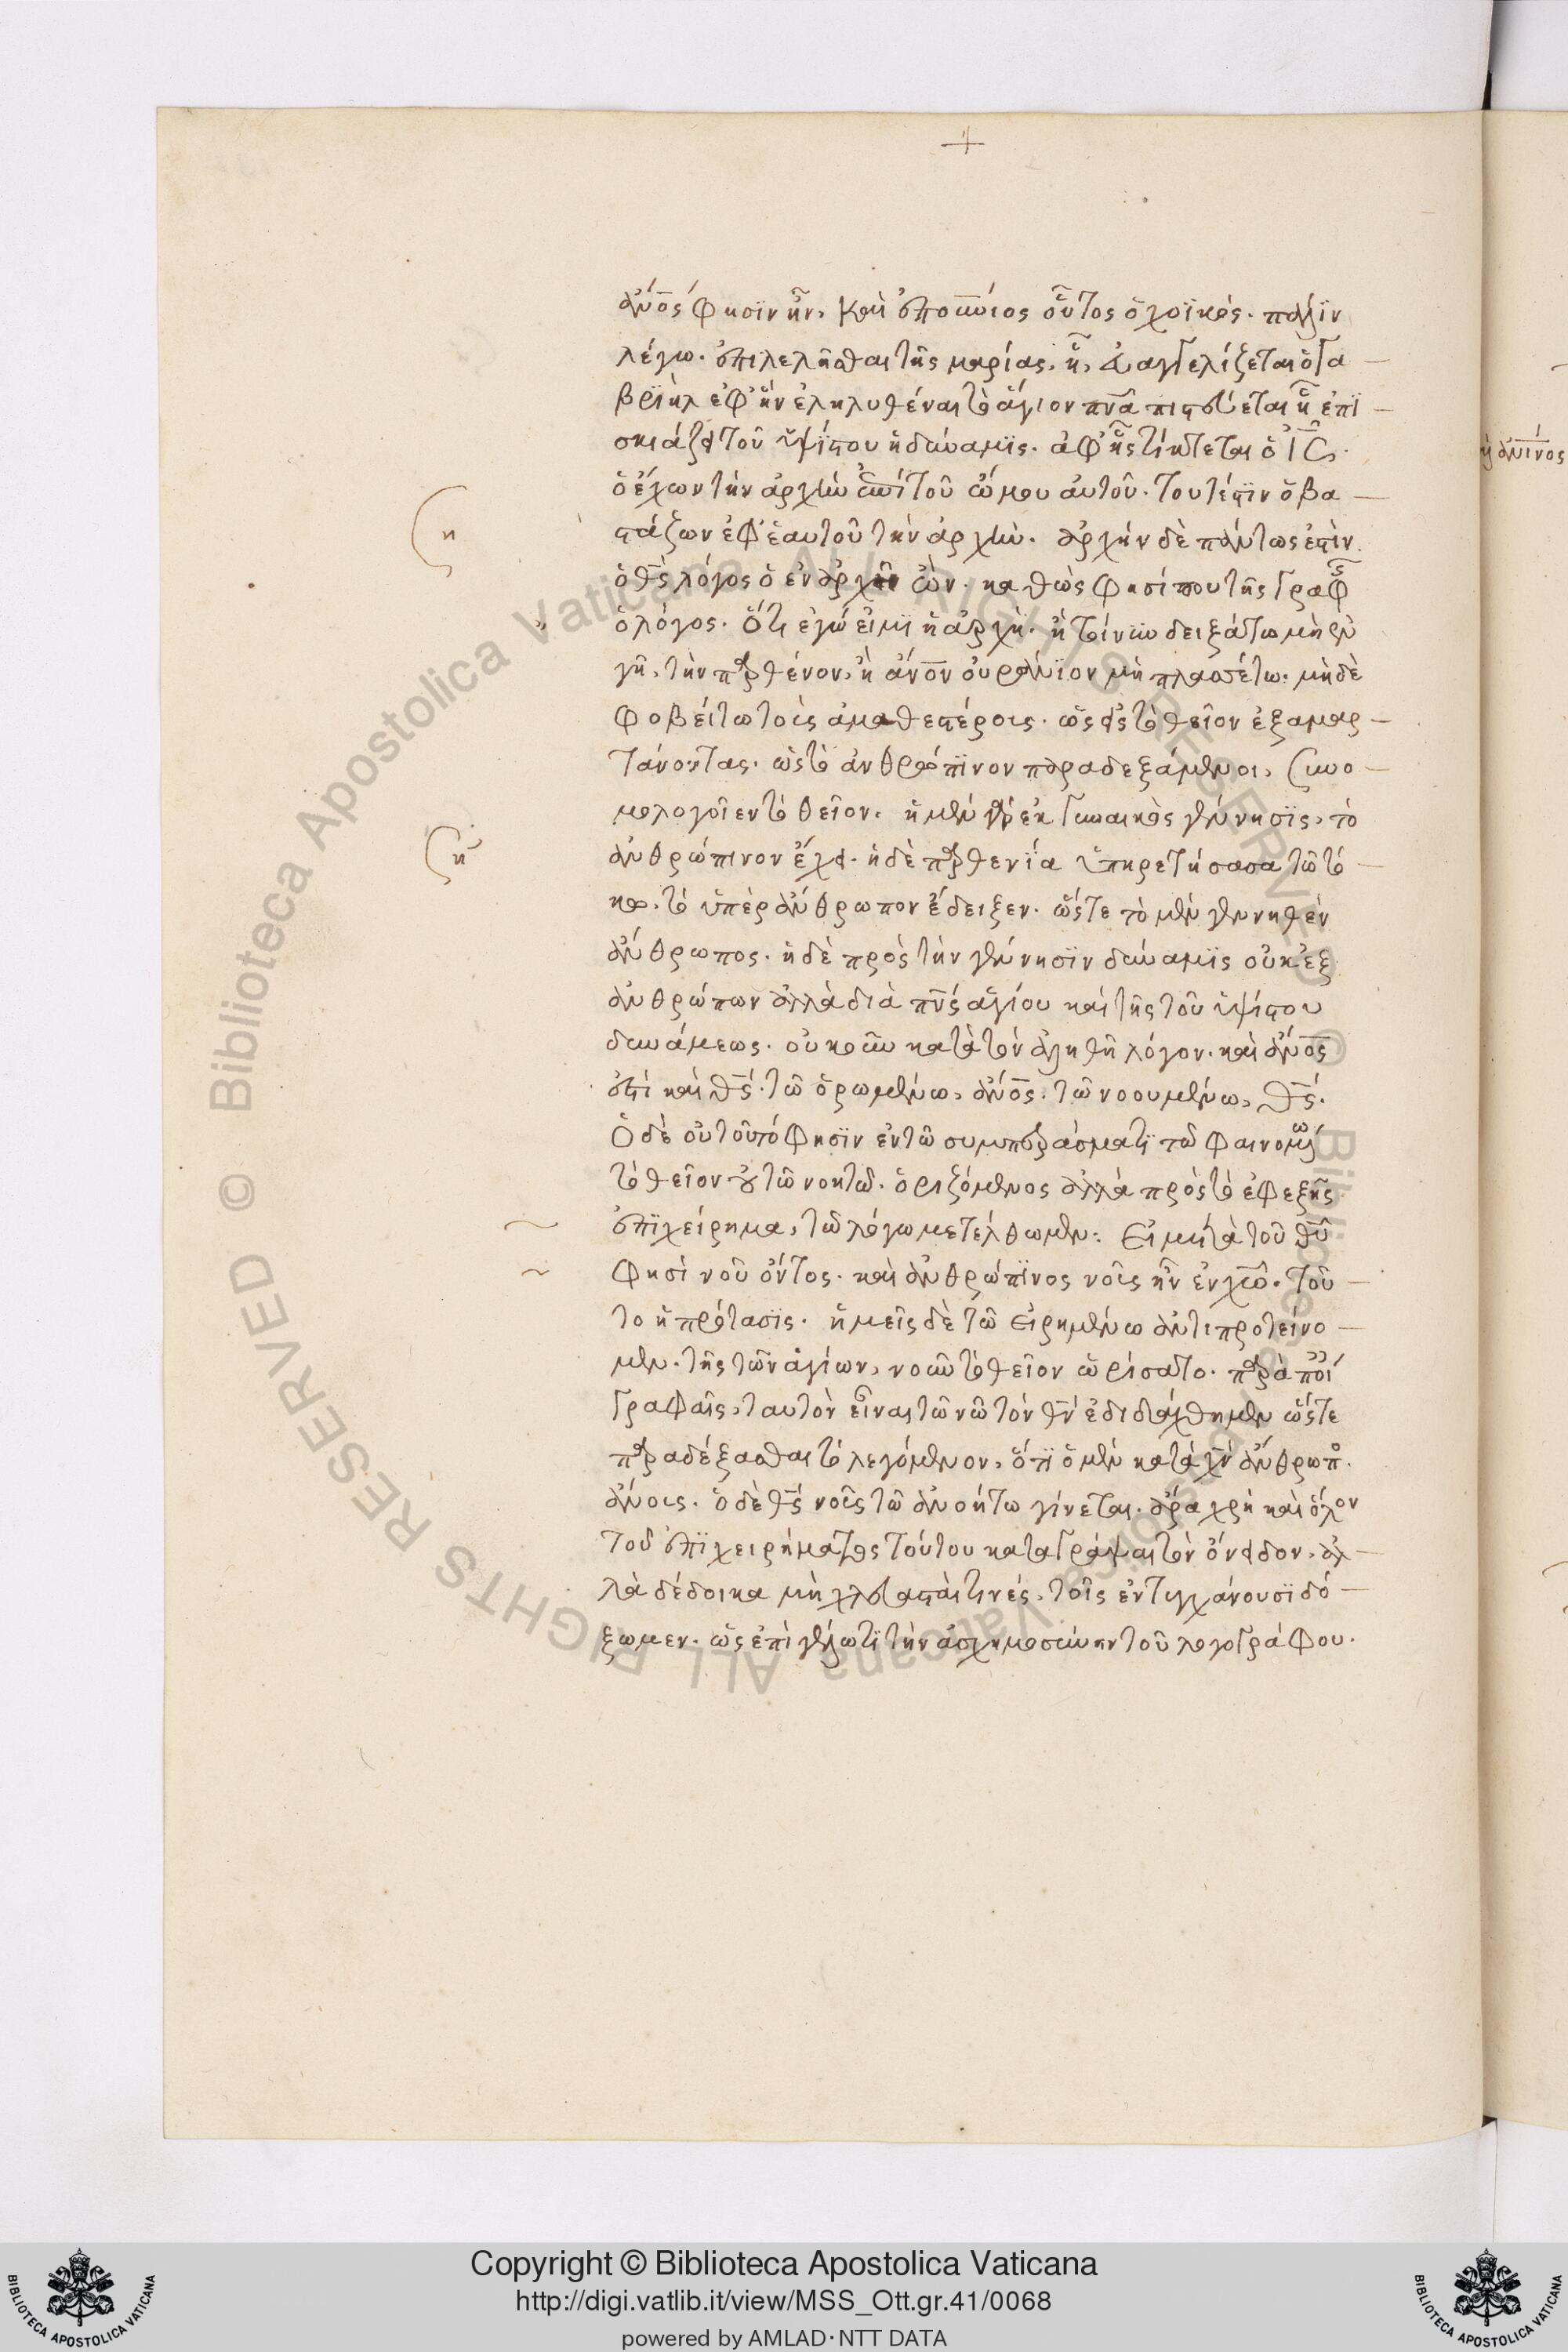 ἄνος φησὶν ἦν, καὶ ἐπουράνιος οὗτος ὁ χοϊκός. πάλϊν
λέγω. ἐπιλελῆσθαι τῆς μαρίας, ἣ, εὐαγγελίζεται ὁ γα
βριὴλ ἐφ' ἣν ἐληλυθέναι τὸ ἅγιον πνα πιστεύεται ἣ ἐπϊ
σκιάζει τοῦ ὑψίστου ἡ δύναμϊς. ἀφ' ἧς τίκτεται ὁ ΙΣ.
ὁ ἔχων τὴν ἀρχὴν ἐπὶ τοῦ ὤμου αὐτοῦ. τουτέστϊν ὁ βα
στάζων ἐφ' ἑαυτοῦ τὴν ἀρχήν. ἀρχὴν δὲ πάντως ἐστὶν
ὁ θς λόγος ὁ ἐν ἀρχῆ ὢν. καθὼς φησί που τῆς γραφῆς
ὁ λόγος. ὅτι ἐγώ εἰμϊ ἡ ἀρχή. ἢ τοίνυν δειξάτω μὴ ἐν
γῆ, τὴν παρθένον, ἢ ἄνον οὐράνϊον μὴ πλασσέτω. μὴ δὲ
φοβείτω τοὺς ἀμαθεστέρους. ὡς εἰς τὸ θεῖον ἐξαμαρ
τάνοντας. ὡς τὸ ἀνθρώπϊνον παραδεξάμενοι, συνο
μολογοῖεν τὸ θεῖον. ἡ μὲν γὰρ ἐκ γυναικὸς γέννησϊς, τὸ
ἀνθρώπινον ἔχει. ἡ δὲ παρθενία ὑπηρετήσασα τῶ τό
κω. τὸ ὑπὲρ ἄνθρωπον ἔδειξεν. ὥστε τὸ μὲν γεννηθὲν
ἄνθρωπος. ἡ δὲ πρὸς τὴν γέννησϊν δύναμϊς οὐκ ἐξ
ἀνθρώπων ἀλλὰ διὰ πνς ἁγίου καὶ τῆς τοῦ ὑψίστου
δυνάμεως. οὐκοῦν κατὰ τὸν ἀληθῆ λόγον. καὶ ἄνος
ἐστὶ καὶ θς. τῶ ὁρωμένω, ἄνος. τῶ νοουμένω, θς.
Ὁ δὲ οὐ τοῦτό φησϊν ἐν τῶ συμπεράσματϊ τῶ φαινομένω
τὸ θεῖον οὐ τῶ νοητῶ. ὁριζόμενος ἀλλὰ πρὸς τὸ ἐφεξῆς
ἐπϊχείρημα, τῶ λόγω μετέλθωμεν: Εἰ μετὰ τοῦ θυ
φησὶ νοῦ ὄντος. καὶ ἀνθρώπϊνος νοῦς ἦν ἐν χω. τοῦ
το ἡ πρότασϊς. ἡμεῖς δὲ τῶ εἰρημένω ἀντιπροτείνο
μεν. τῆς τῶν ἁγίων, νοῦν τὸ θεῖον ὡρίσατο. παρὰ ποί
γραφαῖς, ταυτὸν εἶναι τῶ νῶ τὸν θν ἐδιδάχθημεν ὥστε
παραδέξασθαι τὸ λεγόμενον, ὅτϊ ὁ μὲν κατὰ χν ἄνθρωπ.
ἄνους. ὁ δὲ θς νοῦς τῶ ἀνοήτω γίνεται. ἄρα χρὴ καὶ ὅλον
τοῦ ἐπϊχειρήματος τούτου καταγράψαι τὸν ὄνειδον. ἀλ
λὰ δέδοικα μὴ χλευασταί τινές, τοῖς ἐντυγχάνουσϊ δό
ξωμεν. ὡς ἐπὶ γέλωτϊ τὴν ἀσχημοσύνην τοῦ λογογράφου.
Copyright © Biblioteca Apostolica Vaticana
http://digi.vatlib.it/view/MSS_Ott.gr.41/0068
powered by AMLAD·NTT DATA